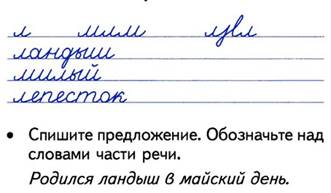 л млм лзвл
ландыш
милый
лепесток
• Спишите предложение. Обозначьте над
словами части речи.
Родился ландыш в майский день.